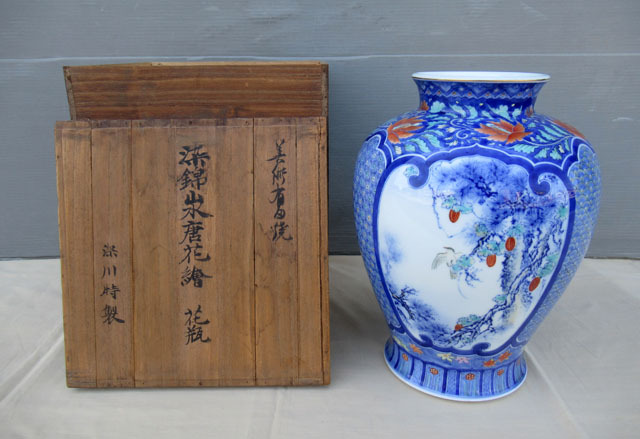 美術有田焼
染錦山水唐花繪 花瓶
深川特製